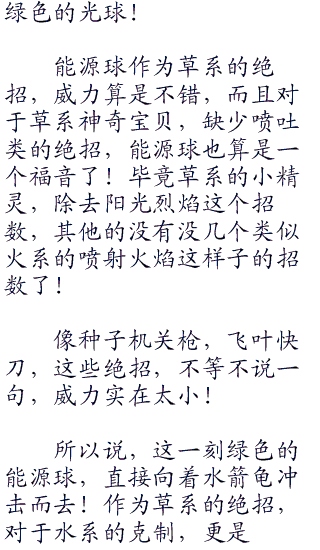 绿色的光球！
能源球作为草系的绝
招，威力算是不错，而且对
于草系神奇宝贝，缺少喷吐
类的绝招，能源球也算是一
个福音了！毕竟草系的小精
灵，除去阳光烈焰这个招
数，其他的没有没几个类似
火系的喷射火焰这样子的招
数了！
像种子机关枪，飞叶快
刀，这些绝招，不等不说一
句，威力实在太小！
所以说，这一刻绿色的
能源球，直接向着水箭龟冲
击而去！作为草系的绝招，
对于水系的克制，更是